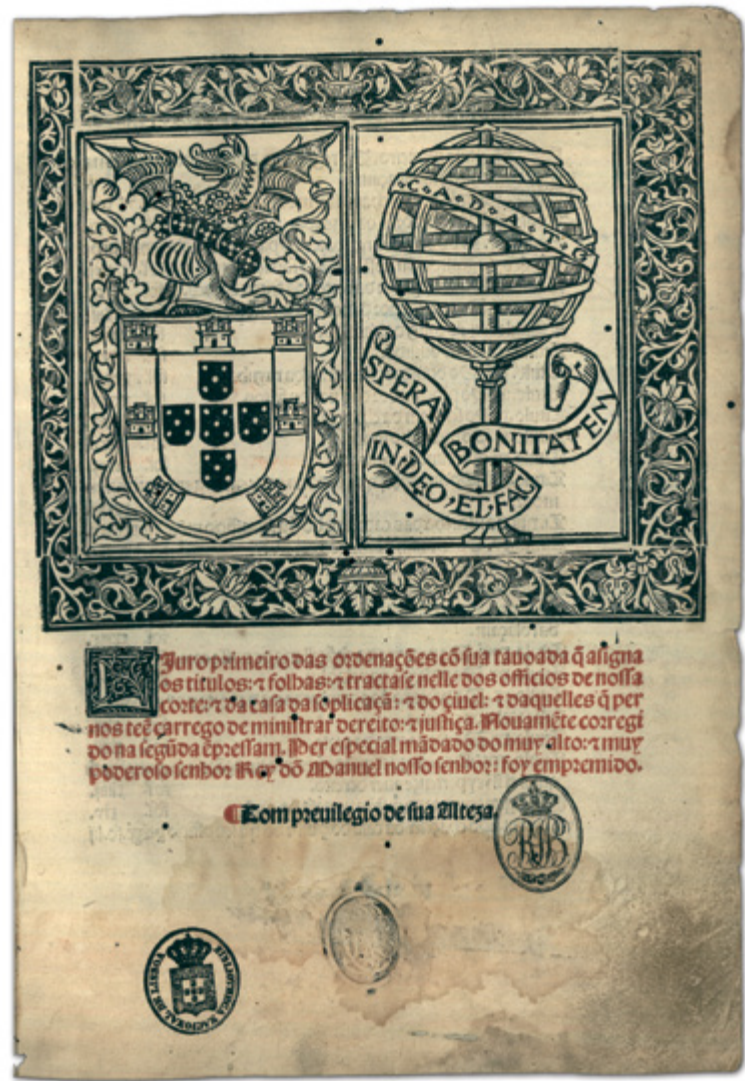 C·A·D·A·T·G
SPERA
IN·DEO,ET·FAC
BONITATEM
Liuro primeiro das ordenações cõ sua tauoada q̃ asigna
os titulos: ⁊ folhas: ⁊ tractase nelle dos officios de nossa
corte: ⁊ da casa da soplicaçã: ⁊ do çiuel: ⁊ daquelles q̃ per
nos teẽ carrego de ministrar dereito: ⁊ justiça. Nouamẽte corregi
do na segũda ẽpressam. Per especial mãdado do muy alto: ⁊ muy
poderoso senhor Rey dõ Manuel nosso senhor: foy empremido.
Com preuilegio de sua Alteza.
BIBLIOTHECA NACIONAL DE LISBOA